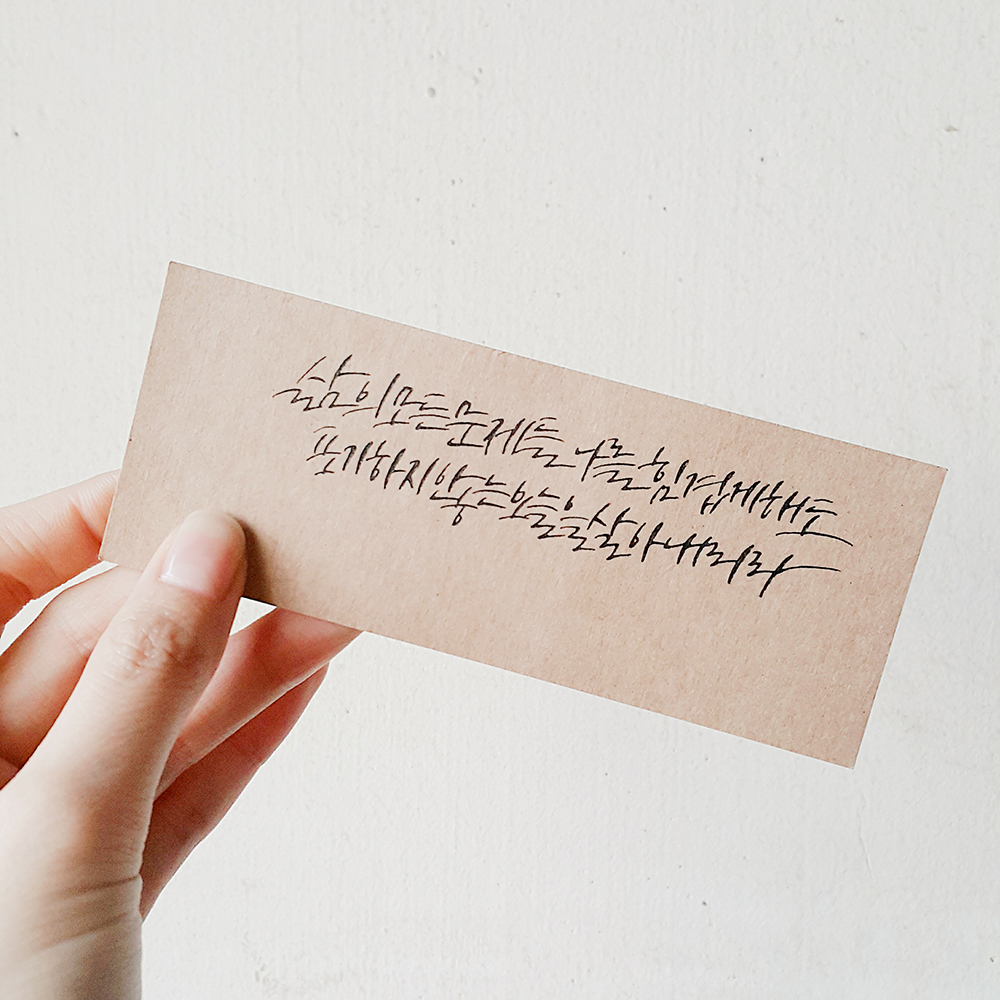 삶의 모든 문제들 나를 힘겹게 해도
포기하지 않는 오늘을 살아내리라